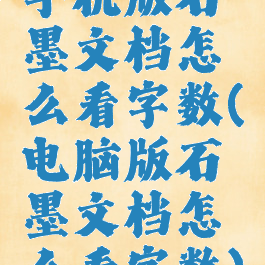 手机版石
墨文档怎
么看字数(
电脑版石
墨文档怎
么看字数)